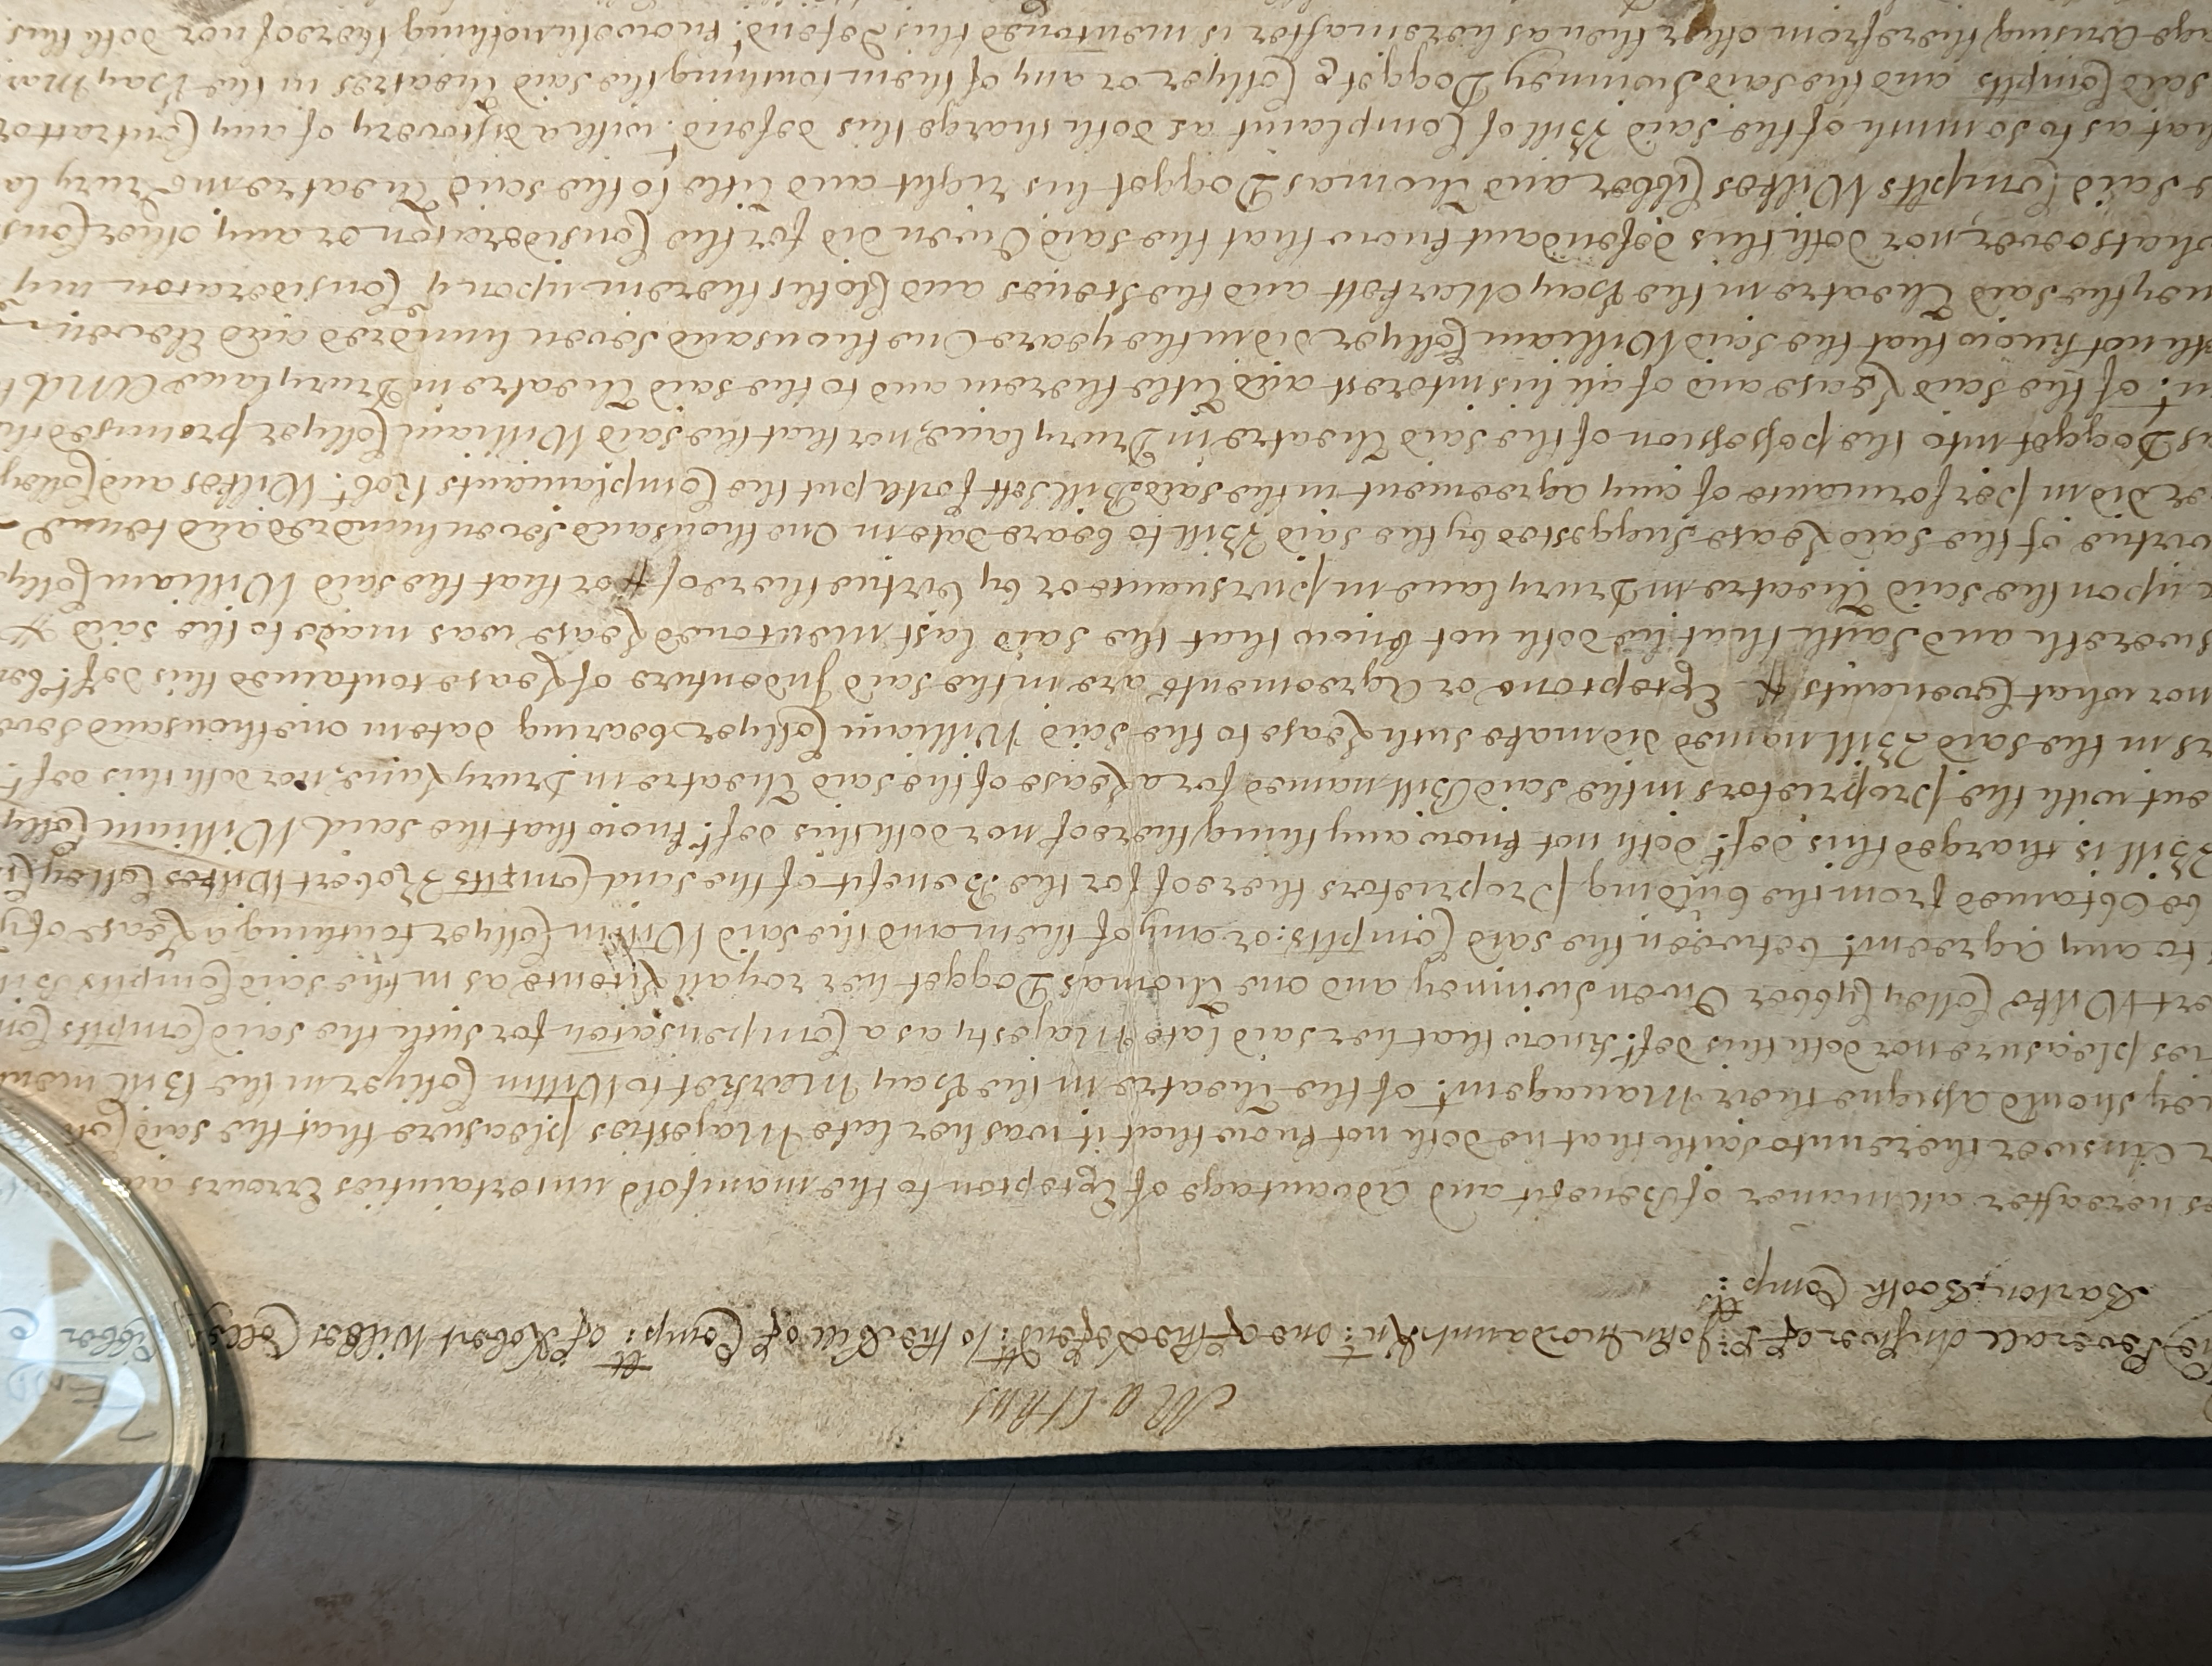 Severall Answer of Sr: John Mordaunt Kt: one of the Defendts: to the Bill of Compt: of Robert Wilkes Colley Cibber
Barton Booth Compts:
hereafter all manner of Benefit and advantage of Exception to the manifold uncertainties Errours and
Answer thereunto saith that he doth not know that it was her late Majesties pleasure that the said
should assigne their Managemt: of the Theatre in the Hay Market to Willm Collyer in the Bill
pleasure nor doth this deft: know that her said late Majesty as a Compensation for such the said Complts
Wilks Colley Cybber Owen Swinney and one Thomas Dogget her royall Licence as in the said Complts Bill
to any agreemt: between the said Complts: or any of them and the said Willm Collyer touching a Lease
be Obtained from the building proprietors thereof for the Benefit of the said Complts Robert Wilkes Colley
Bill is charged this deft: doth not know any thing thereof nor doth this deft: know that the said William
with the proprietors in the said Bill named for a Lease of the said Theatre in Drury Lane, nor doth this deft:
in the said Bill named did make such Lease to the said William Collyer bearing date in one thousand
nor what Covenants Exceptions or Agreements are in the said Indenture of Lease contained this deft:
and saith that he doth not know that the said last mentioned Lease was made to the said
upon the said Theatre in Drury lane in pursuance or by Virtue thereof or that the said William
virtue of the said Lease suggested by the said Bill to beare date in One thousand seven hundred and
did in performance of any agreement in the said Bill sett forth put the Complainants Robt: Wilkes and Colley
Dogget into the possession of the said Theatre in Drury lane, nor that the said William Collyer promised
of the said Lease and of all his interest and Title therein and to the said Theatre in Drury lane And
not know that the said William Collyer did in the yeare One thousand seven hundred and Eleven
the said Theatre in the Hay Markett and the Scenes and Cloths therein upon Consideration
whatsoever, nor doth this defendant know that the said Owen did for the Consideration or any other
said Complts Wilkes Cibber and Thomas Dogget his right and title to the said Theatre in Drury
that as to so much of the said Bill of Complaint as doth charge this defendt: with a discovery of any Contract or
said Complts and the said Swinney Dogget & Collyer or any of them touching the said Theatres in the Hay
arising therefrom other then as hereinafter is mentoned this defendt: knoweth nothing thereof nor doth this